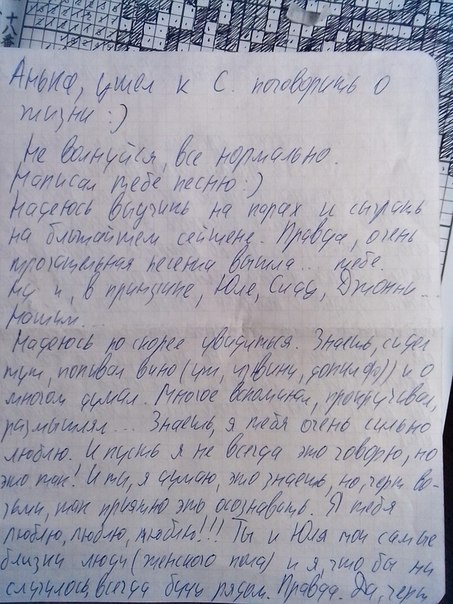 十八
Анька, ушел к С. поговорить о
жизни :)
Не волнуйся, все нормально.
Написал тебе песню :)
Надеюсь выучить на парах и сыграть
на ближайшем сейшене. Правда, очень
прощательная песенка вышла... тебе.
Ну и, в принципе, Юле, Сиду, Джонни...
Нашим...
Надеюсь поскорее увидиться. Знаешь, сидел
тут, попивал вино (упс, извини, допил)) и о
многом думал. Многое вспоминал, прокручивал,
размышлял... Знаешь, я тебя очень сильно
люблю. И пусть я не всегда это говорю, но
это так! И ты, я думаю, это знаешь, но, черт во-
зьми, как приятно это осознавать. Я тебя
люблю, люблю, люблю!!! Ты и Юля мои самые
близкие люди (женского пола) и я, что бы ни
случилось, всегда буду рядом. Правда. Да, черт